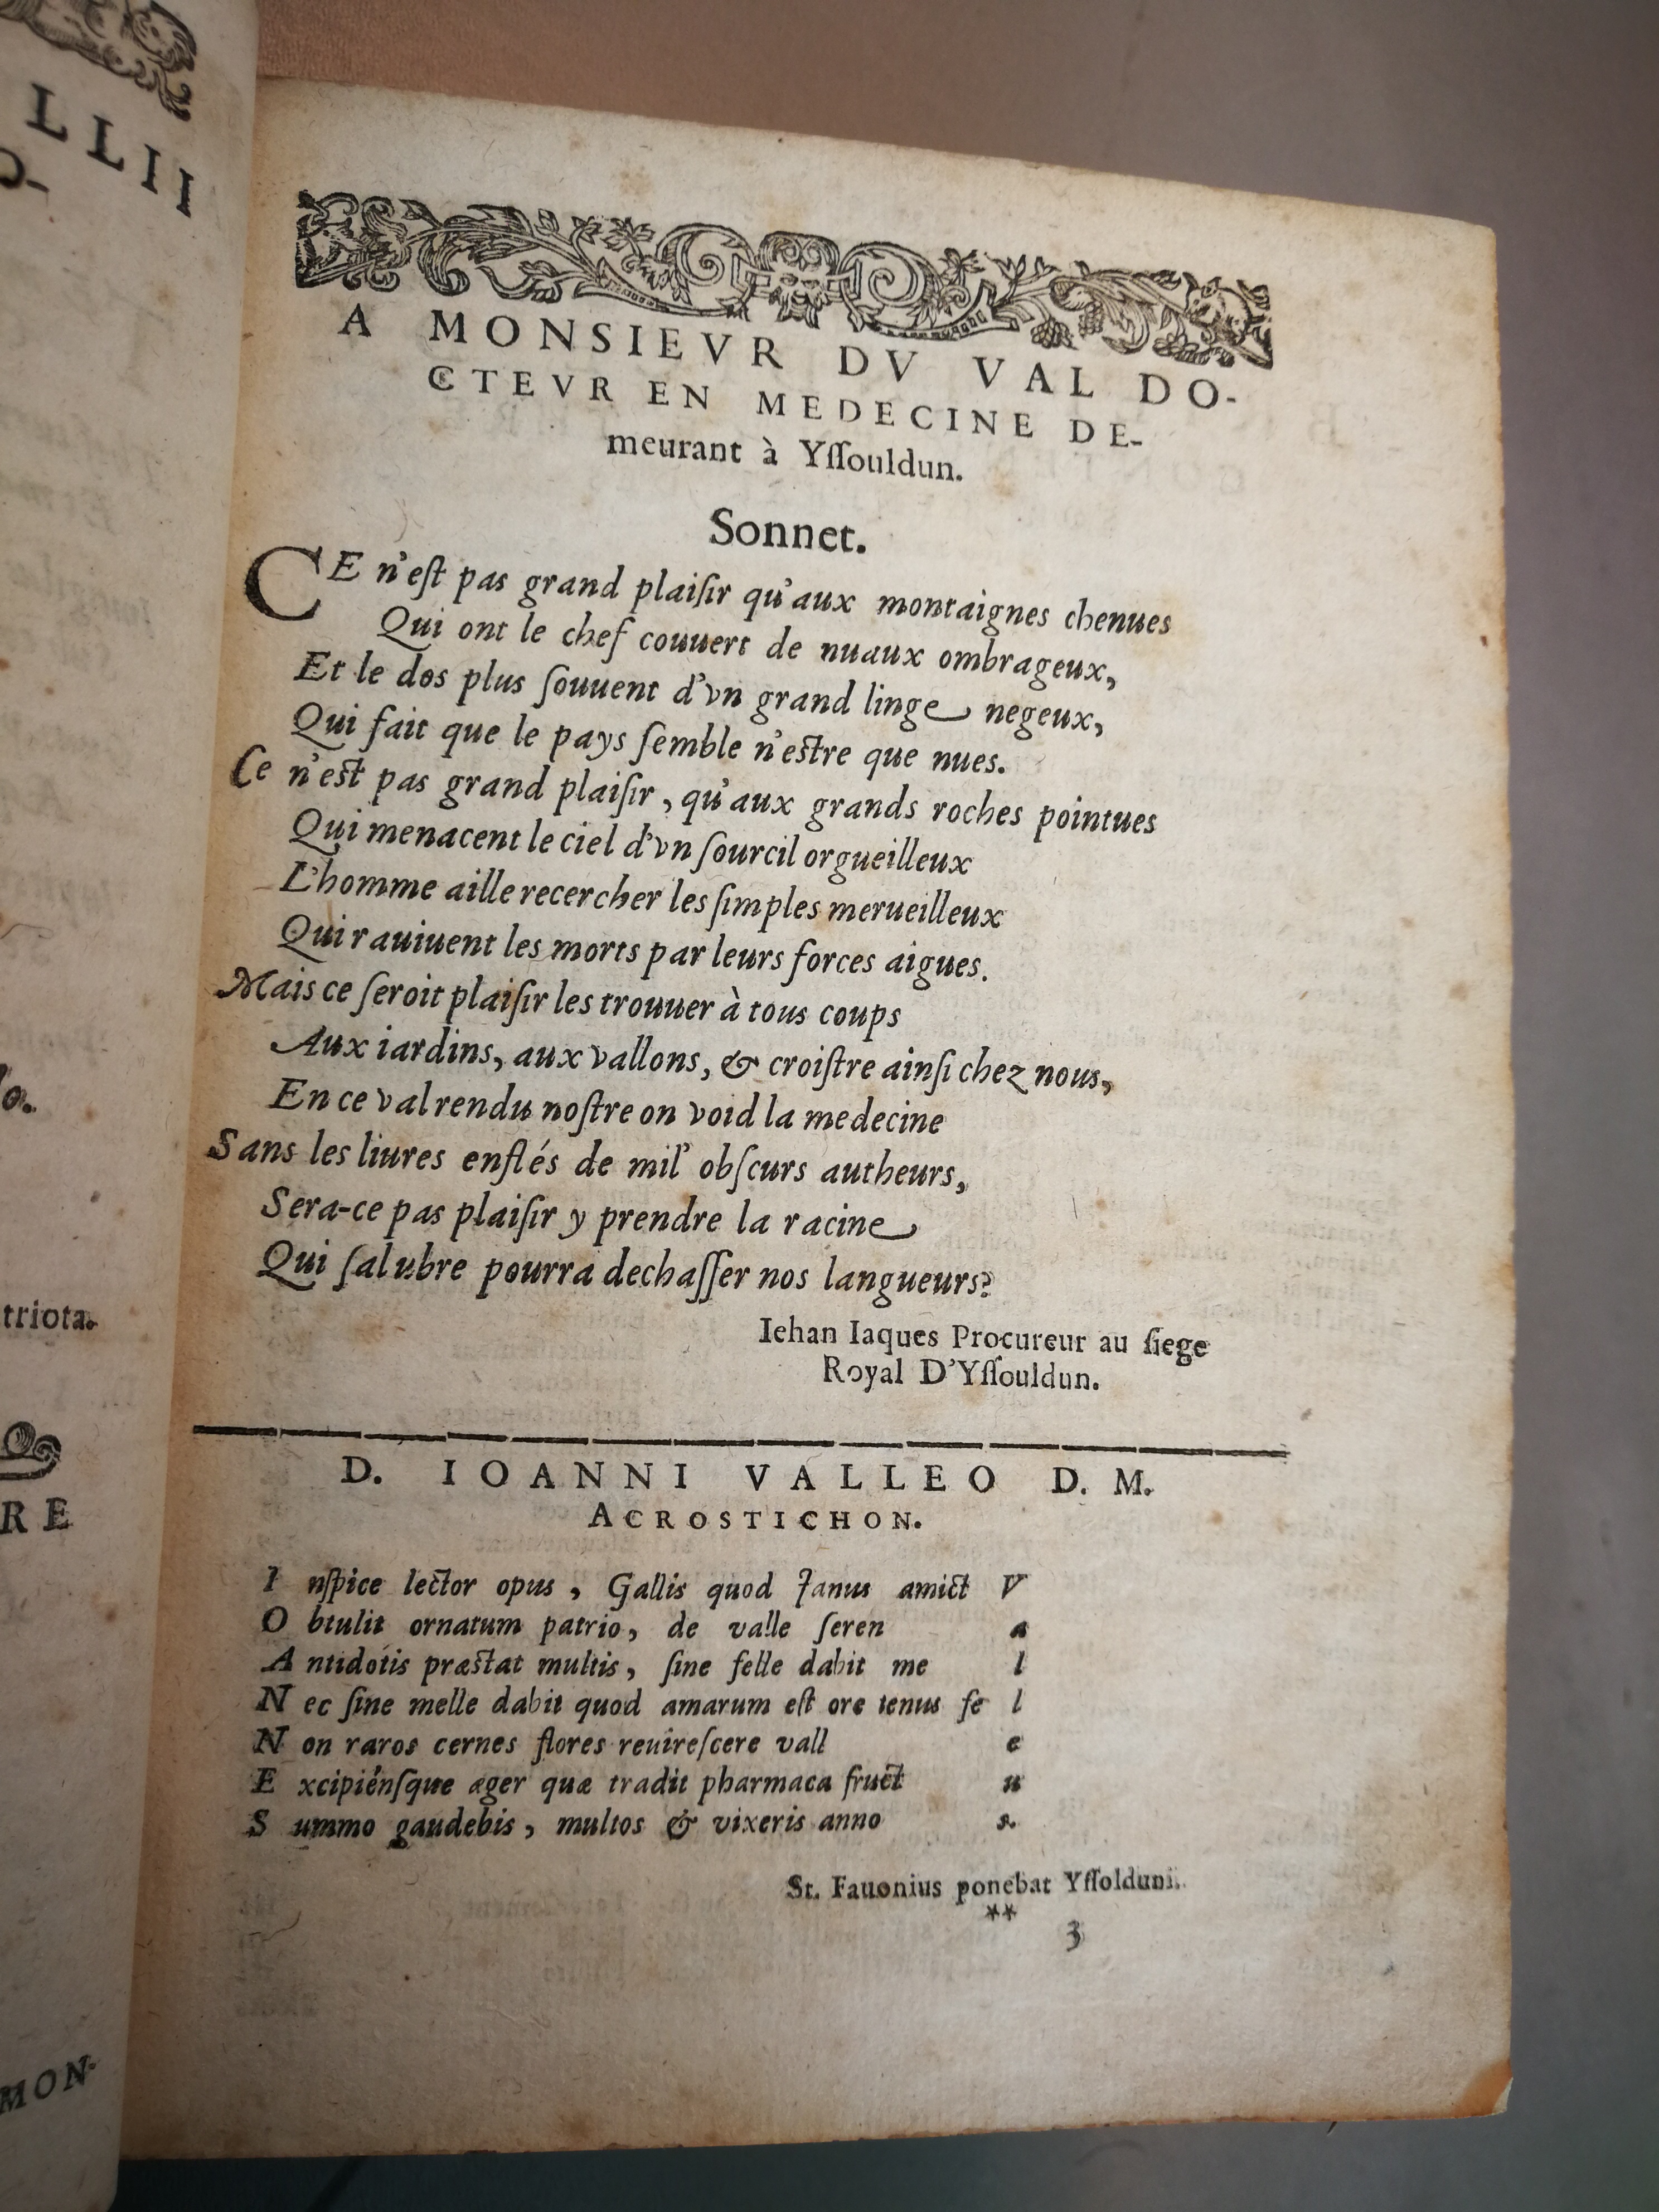 LLII
triota.
RE
MON-
A MONSIEVR DV VAL DO-
CTEVR EN MEDECINE DE-
meurant à Yſſouldun.
Sonnet.
CE n'eſt pas grand plaiſir qu'aux montaignes chenues
Qui ont le chef couuert de nuaux ombrageux,
Et le dos plus ſouuent d'vn grand linge negeux,
Qui fait que le pays ſemble n'eſtre que nues.
Ce n'eſt pas grand plaiſir, qu'aux grands roches pointues
Qui menacent le ciel d'vn ſourcil orgueilleux
L'homme aille recercher les ſimples merueilleux
Qui rauiuent les morts par leurs forces aigues.
Mais ce ſeroit plaiſir les trouuer à tous coups
Aux iardins, aux vallons, & croiſtre ainſi chez nous,
En ce val rendu noſtre on void la medecine
Sans les liures enflés de mil' obſcurs autheurs,
Sera-ce pas plaiſir y prendre la racine
Qui ſalubre pourra dechaſſer nos langueurs?
Iehan Iaques Procureur au ſiege
Royal D'Yſſouldun.
D. IOANNI VALLEO D. M.
ACROSTICHON.
I nſpice lector opus, Gallis quod Janus amict V
O btulit ornatum patrio, de valle ſeren a
A ntidotis præſtat multis, ſine felle dabit me l
N ec ſine melle dabit quod amarum eſt ore tenus fe l
N on raros cernes flores reuireſcere vall e
E xcipiénſque æger quæ tradit pharmaca fruct u
S ummo gaudebis, multos & vixeris anno s.
St. Fauonius ponebat Yſſolduni.
** 3